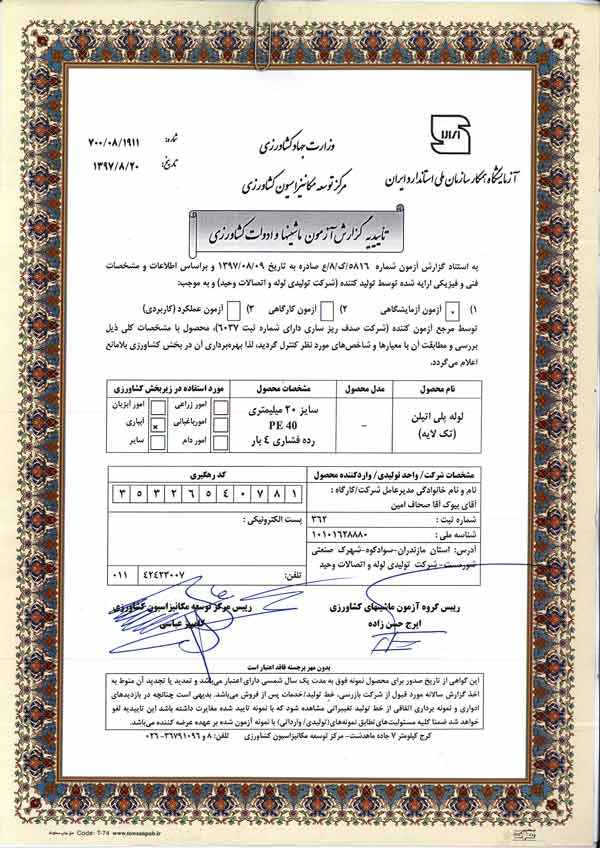 وزارت جهاد کشاورزی
شماره: ۷۰۰/۰۸/۱۹۱۱
تاریخ: ۱۳۹۷/۸/۲۰
آزمایشگاه همکار سازمان ملی استاندارد ایران
مرکز توسعه مکانیزاسیون کشاورزی
تأییدیه گزارش آزمون ماشینها و ادوات کشاورزی
به استناد گزارش آزمون شماره ۵۸۱۶/ک/۸/ع صادره به تاریخ ۱۳۹۷/۰۸/۰۹ و براساس اطلاعات و مشخصات
فنی و فیزیکی ارایه شده توسط تولید کننده (شرکت تولیدی لوله و اتصالات وحید) و به موجب:
۱) آزمون آزمایشگاهی ۲) آزمون کارگاهی ۳) آزمون عملکرد (کاربردی)
توسط مرجع آزمون کننده (شرکت صدف ریز ساری دارای شماره ثبت ۶۰۳۷)، محصول با مشخصات کلی ذیل
بررسی و مطابقت آن با معیارها و شاخص‌های مورد نظر کنترل گردید، لذا بهره‌برداری آن در بخش کشاورزی بلامانع
اعلام می‌گردد.
نام محصول مدل محصول مشخصات محصول مورد استفاده در زیربخش کشاورزی
لوله پلی اتیلن
(تک لایه)
–
سایز ۲۰ میلیمتری
PE 40
رده فشاری ٤ بار
امور زراعی امور آبزیان
امورباغبانی آبیاری ×
امور دام سایر
مشخصات شرکت/ واحد تولیدی/ واردکننده محصول کد رهگیری
نام و نام خانوادگی مدیرعامل شرکت/کارگاه :
آقای بیوک آقا صحاف امین
۳ ۵ ۳ ۲ ۶ ۵ ۴ ۰ ۷ ۸ ۱
شماره ثبت : ۳۶۲
پست الکترونیکی :
شناسه ملی : ۱۰۱۰۱۶۲۸۸۸۰
آدرس: استان مازندران-سوادکوه-شهرک صنعتی
شورمست- شرکت تولیدی لوله و اتصالات وحید
تلفن: ۴۲۴۲۳۰۰۷ ۰۱۱
رییس گروه آزمون ماشینهای کشاورزی
ایرج حسن زاده
رییس مرکز توسعه مکانیزاسیون کشاورزی
عباسی
بدون مهر برجسته فاقد اعتبار است
این گواهی از تاریخ صدور برای محصول نمونه فوق به مدت یک سال شمسی دارای اعتبار می‌باشد و تمدید یا تجدید آن منوط به
اخذ گزارش سالانه مورد قبول از شرکت بازرسی، خط تولید/خدمات پس از فروش می‌باشد. بدیهی است چنانچه در بازدیدهای
ادواری و نمونه برداری اتفاقی از خط تولید تغییراتی مشاهده شود که با نمونه تایید شده مغایرت داشته باشد این تاییدیه لغو
خواهد شد ضمنا کلیه مسئولیت‌های تطابق نمونه‌های(تولیدی/ وارداتی) با نمونه آزمون شده بر عهده عرضه کننده می‌باشد.
کرج کیلومتر ۷ جاده ماهدشت- مرکز توسعه مکانیزاسیون کشاورزی تلفن: ۸ و ۳۶۷۹۱۰۹۶-۰۲۶
Code: T-74 www.towsanpub.ir